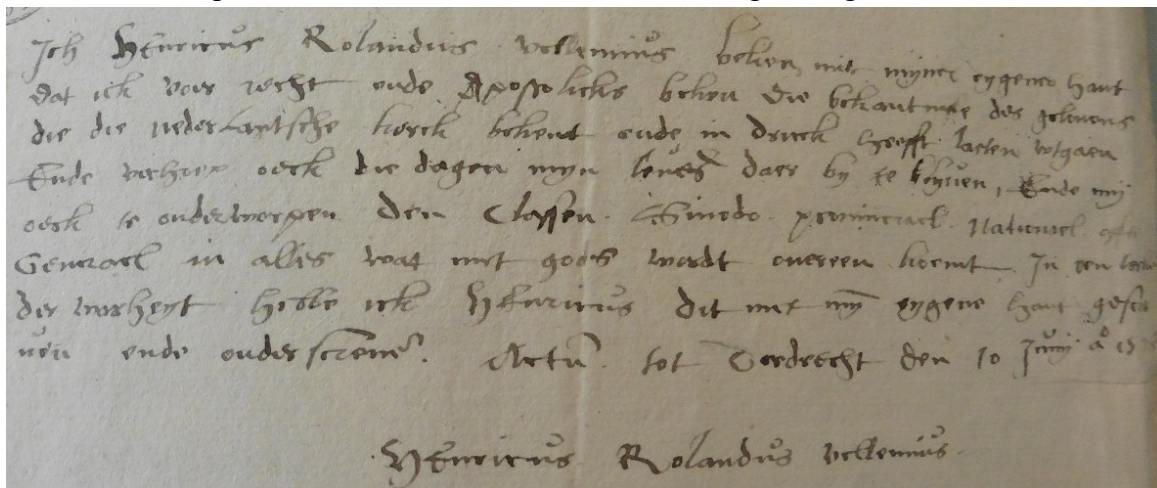 Ich Henricus Rolandus vellemius beken mit myner eygener hant
dat ick voer recht ende Apostolicks beken die bekantnisse des gelouens
die die nederlantsche kerck bekent ende in druck heefft laeten wtgaen
Ende verhoep oeck die dagen myn leues daer by te blyuen, Ende my
oeck te onderworpen den Classen. Sinodo. prouinciael. Nationael. ofte
Generael in alles wat mit gods wordt ouereen koemt. In een
der warheyt hebbe ick Henricus dit mit my eygene hant
uen ende onderscreuen. Actu tot Dordrecht den 10 Junij a° 15
Henricus Rolandus vellemius.